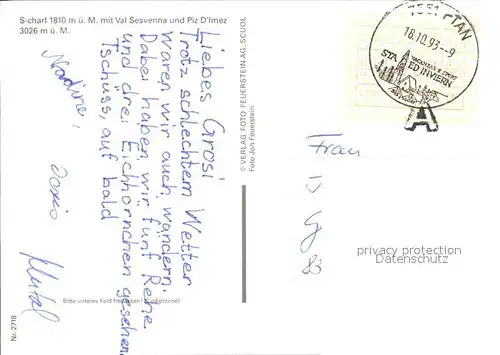 S-charl 1810 m ü. M. mit Val Sesvenna und Piz D'Imez
3026 m ü. M.
Liebes Grosi
Trotz schlechtem Wetter
waren wir auch wandern.
Dabei haben wir fünf Rehe
und drei Eichhörnchen gesehen.
Tschüss, auf bald
Nadine,
© VERLAG FOTO FEUERSTEIN AG, SCUOL
Foto Jon Feuerstein
Bitte unteres Feld frei lassen! (Codierzone)
Nr. 2718
FTAN
18.10.93-9
VACANZAS E SPORT
STA
ED INVIERN
A
Frau
privacy protection
Datenschutz